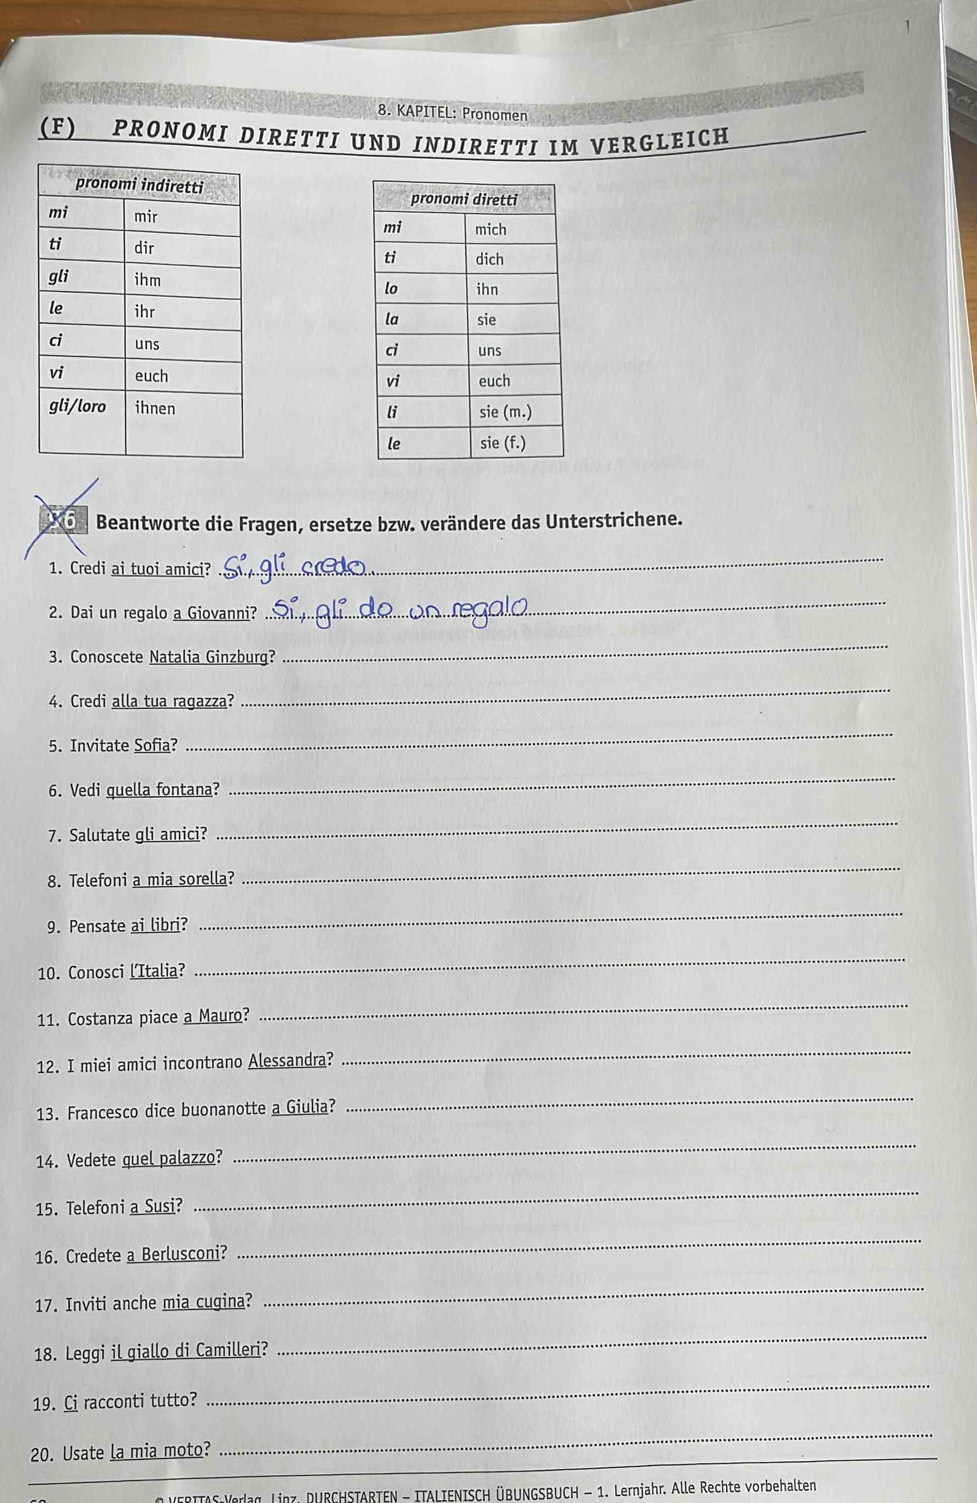 1
8. KAPITEL: Pronomen
(F) PRONOMI DIRETTI UND INDIRETTI IM VERGLEICH
pronomi indiretti
mi mir
ti dir
gli ihm
le ihr
ci uns
vi euch
gli/loro ihnen
pronomi diretti
mi mich
ti dich
lo ihn
la sie
ci uns
vi euch
li sie (m.)
le sie (f.)
6 Beantworte die Fragen, ersetze bzw. verändere das Unterstrichene.
1. Credi ai tuoi amici? Si, gli credo.
2. Dai un regalo a Giovanni? Si, gli do un regalo
3. Conoscete Natalia Ginzburg?
4. Credi alla tua ragazza?
5. Invitate Sofia?
6. Vedi quella fontana?
7. Salutate gli amici?
8. Telefoni a mia sorella?
9. Pensate ai libri?
10. Conosci l'Italia?
11. Costanza piace a Mauro?
12. I miei amici incontrano Alessandra?
13. Francesco dice buonanotte a Giulia?
14. Vedete quel palazzo?
15. Telefoni a Susi?
16. Credete a Berlusconi?
17. Inviti anche mia cugina?
18. Leggi il giallo di Camilleri?
19. Ci racconti tutto?
20. Usate la mia moto?
© VERITAS-Verlag, Linz, DURCHSTARTEN – ITALIENISCH ÜBUNGSBUCH – 1. Lernjahr. Alle Rechte vorbehalten